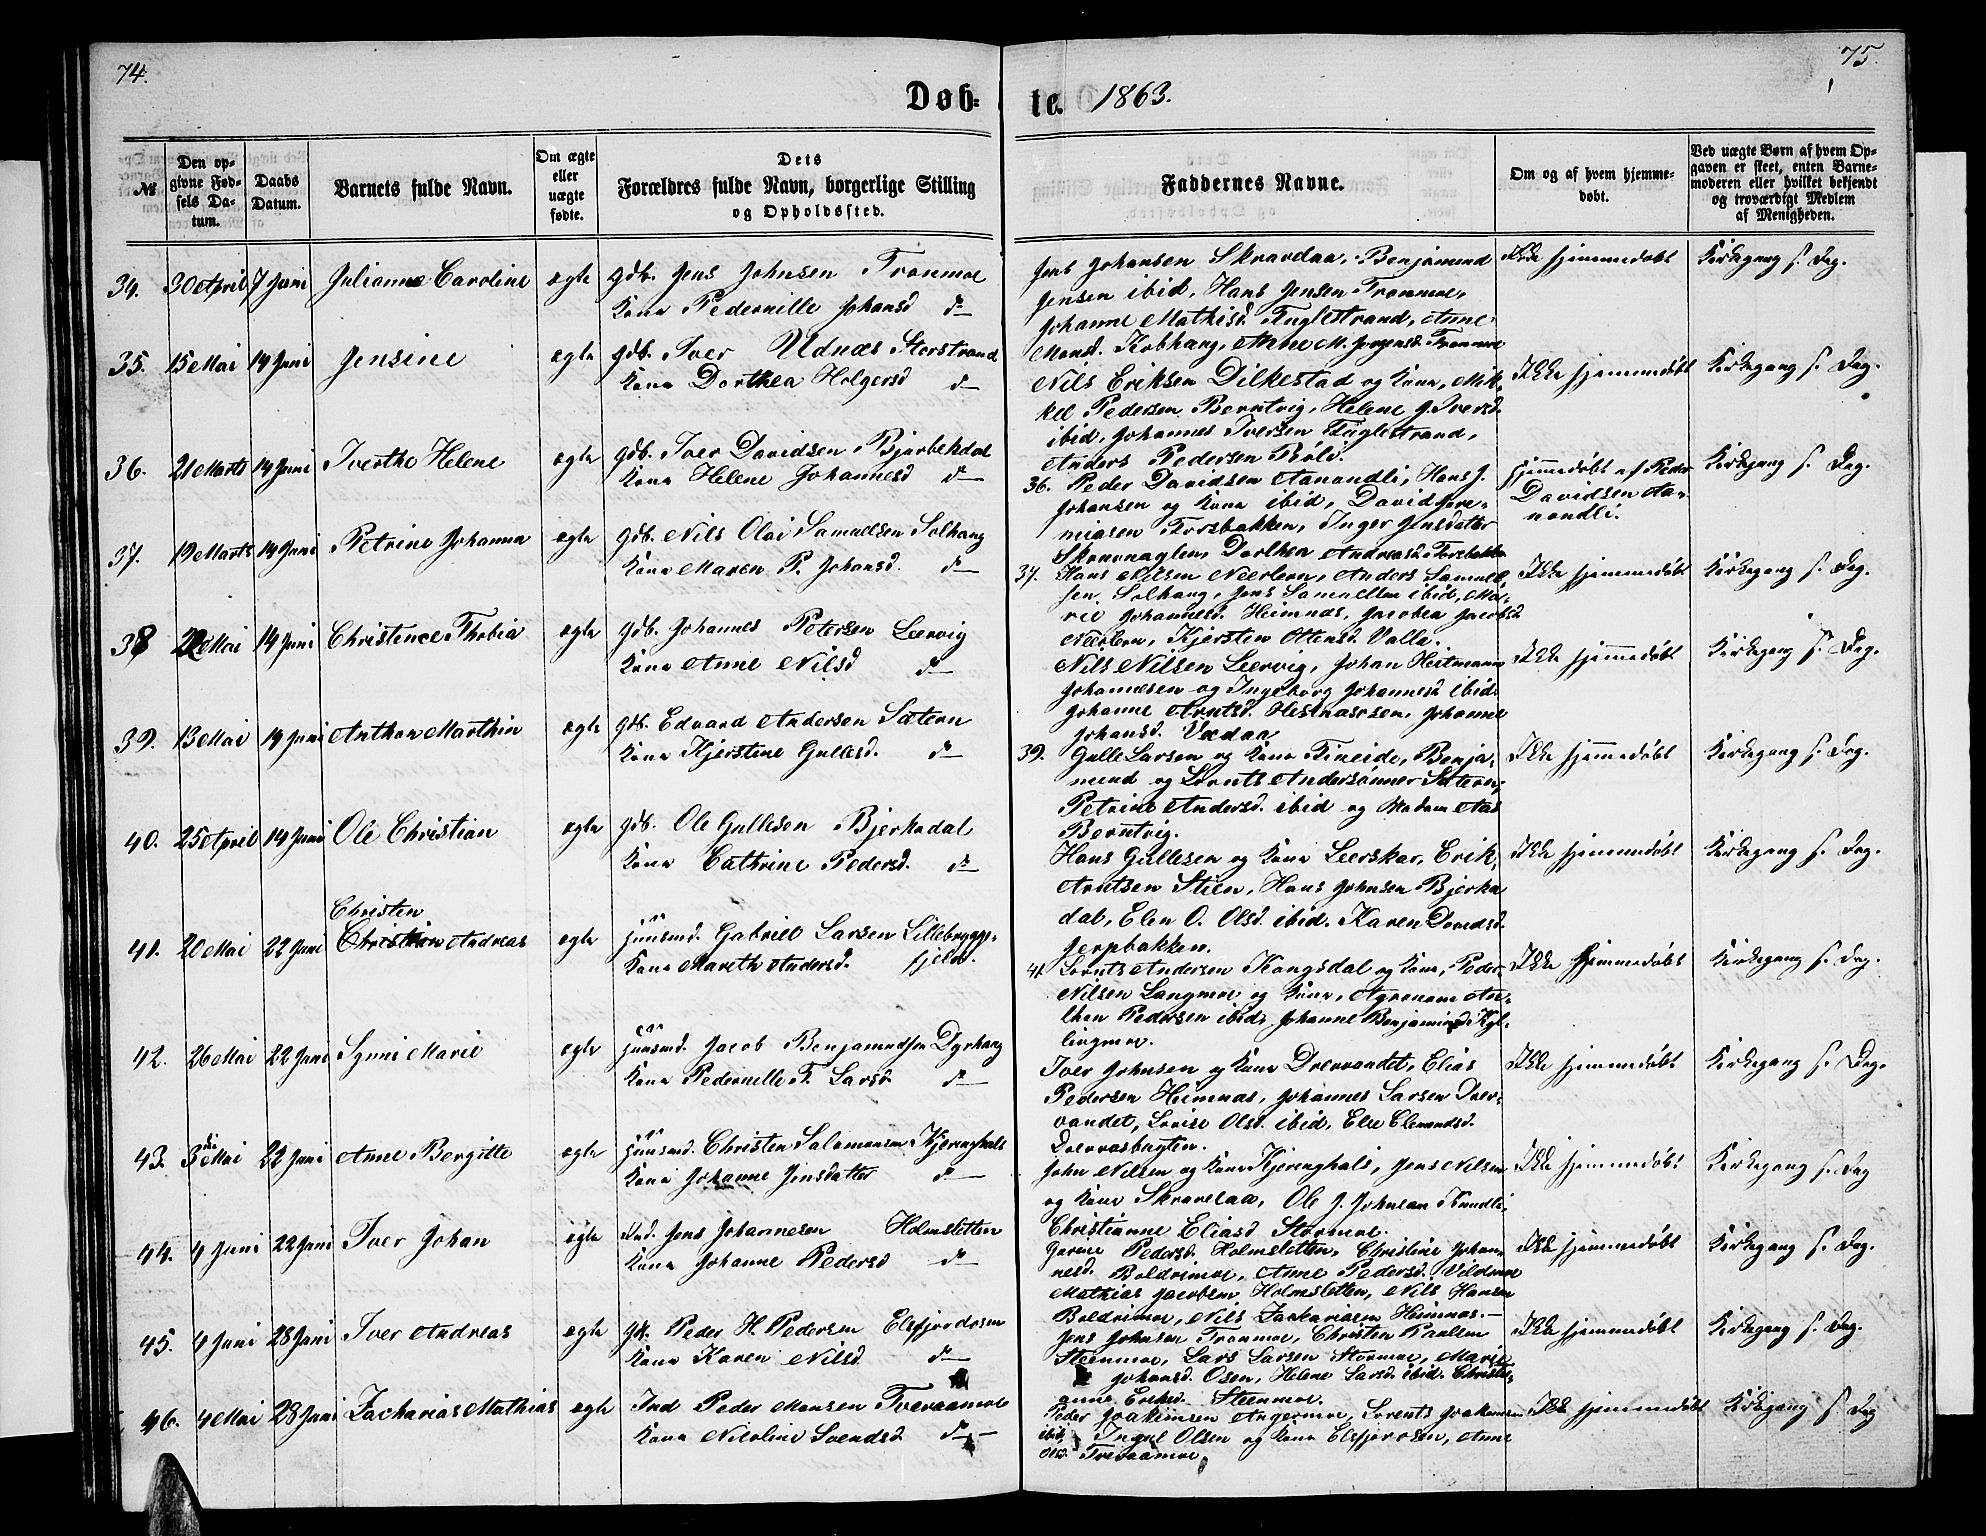 74.
75.
Døb-
te. 1863.
№
Den opgivne Fødsels Datum.
Daabs Datum.
Barnets fulde Navn.
Om ægte eller uægte fødte.
Dets Forældres fulde Navn, borgerlige Stilling og Opholdssted.
Faddernes Navne.
Om og af hvem hjemmedøbt.
Ved uægte Børn af hvem Opgaven er skeet, enten Barnemoderen eller hvilket bekjendt og troværdigt Medlem af Menigheden.
34. 30 April 7 Juni Julianne Caroline ægte gdb. Jens Johnsen Tronmoe
Kone Pedernille Johansd. do
Jens Johansen Skravdaa, Benjamund
Jensen ibid, Hans Jensen Tronmoe,
Johanne Mathisd. Fuglestrand, Anne
Monsd. Kobhaug, Anne M. Jørgensd. Tronmoe
Ikke hjemmedøbt
Kirkegang s. Dag.
35. 15 Mai 14 Juni Jensine ægte gdb. Iver Udnæs Storstrand
Kone Dorthea Holgersd. do
Nils Eriksen Dilkestad og Kone, Mik-
kel Pedersen Berntvig, Helene J. Iversd.
ibid, Johannes Iversen Fuglestrand,
Anders Pedersen Røli.
Ikke hjemmedøbt
Kirkegang s. Dag.
36. 21 Marts 14 Juni Iverthe Helene ægte gdb. Iver Davidsen Bjerkedal
Kone Helene Johannesd. do
36. Peder Davidsen Aanondli, Hans J.
Johansen og Kone ibid, David Jere-
miasen Forsbakken, Inger Jensdatter
Skravnaglen, Dorthea Andreasd. Forsbakken
Hjemmedøbt af Peder
Davidsen Aa-
nondli.
Kirkegang s. Dag.
37. 19 Marts 14 Juni Petrine Johanna ægte gdb. Nils Olai Samuelsen Solhaug
Kone Maren P. Johansd. do
37. Hans Nilsen Neerleren, Anders Samuel-
sen, Solhaug, Jens Samuelsen ibid, Ma-
rie Johannesd. Heimnæs, Jacobea Jacobsd.
Neerleren, Kjersten Ottensd. Valla.
Ikke hjemmedøbt
Kirkegang s. Dag.
38 22 Mai 14 Juni Christence Thobia ægte gdb. Johannes Petersen Leervig
Kone Anne Nilsd. do
Nils Nilsen Leervig, Johan Heitmann
Johannesen og Ingeborg Johannesd. ibid.
Johanne Arntsd. Hestnæsøen, Johanne
Johansd. Vædaa
Ikke hjemmedøbt
Kirkegang s. Dag.
39. 13 Mai 14 Juni Anthon Marthin ægte gdb. Edvard Andersen Sætern
Kone Kjerstine Gullesd. do
39. Gulle Larsen og Kone Fineide, Benja-
mund og Lornts Andersønner Sætern,
Petrine Andersd. ibid og Madam Aas
Berntvig.
Ikke hjemmedøbt
Kirkegang s. Dag.
40. 25 April 14 Juni Ole Christian ægte gdb. Ole Gullesen Bjerkadal
Kone Cathrine Pedersd. do
Hans Gullesen og Kone Leerskar, Erik
Arntsen Stien, Hans Johnsen Bjerka
dal, Elen O. Olsd. ibid. Karen Davidsd.
Jerpbakken.
Ikke hjemmedøbt
Kirkegang s. Dag.
Christen
41. 20 Mai 22 Juni Christian Andreas ægte Huusmd. Gabriel Larsen Lillebrygge-
Kone Mareth Andersd. fjeld.
41 Lornts Andersen Kongsdal og Kone, Peder
Nilsen Langmoe og Kone, Agronom An-
thon Pedersen ibid, Johanne Benjamind. Kyl-
lingmoe.
Ikke hjemmedøbt
Kirkegang s. Dag.
42. 26 Mai 22 Juni Synni Marie ægte Huusmd. Jacob Benjamundsen Dyrhaug
Kone Pedernelle F. Larsd. do
Iver Johnsen og Kone Drevvandet, Elias
Pedersen Heimnæs, Johannes Larsen Drev-
vandet, Lovise Olsd. ibid, Else Clemendsd.
Drevvasbugten.
Ikke hjemmedøbt
Kirkegang s. Dag.
43. 3die Mai 22 Juni Anne Bergitte ægte Huusmd. Christen Salamonsen Kjerringhals
Kone Johanne Jensdatter do
John Nilsen og Kone Kjeringhals, Jens Nilsen
og Kone Skravelaa, Ole J. Johnsen Kundli,
Christianne Eliasd. Stormoe.
Ikke hjemmedøbt
Kirkegang s. Dag
44. 4 Juni 22 Juni Iver Johan ægte Ind. Jens Johannesen Holmsletten
Kone Johanne Pedersd. do
Pedersd. Holmsletten, Christine Johan-
nesd. Boldrimoe, Anne Pedersd. Vildmoe
Mathias Jacobsen Holmsletten, Nils Hansen
Boldrimoe, Nils Zachariasen Heimnæs.
Ikke hjemmedøbt
Kirkegang s. Dag.
45. 4 Juni 28 Juni Iver Andreas ægte Peder H. Pedersen Elsfjordosen
Kone Karen Nilsd. do
Jens Johnsen Tronmoe, Christen Paulsen
Steenmoe, Lars Larsen Stormoe, Marie
Johansd. Osen, Helene Larsd. ibid. Christi-
anne Eriksd. Steenmoe.
Ikke hjemmedøbt
Kirkegang s. Dag.
46. 4 Mai 28 Juni Zacharias Mathias ægte Ind Peder Monsen Tveraamoe
Kone Nicoline Svendsd. do
Peder Joakimsen Angermoe, Lorents Joakimsen
ibid, Ingul Olsen og Kone Elsfjorosen, Anne
Olsd. Tveraamoe.
Ikke hjemmedøbt
Kirkegang s. Dag